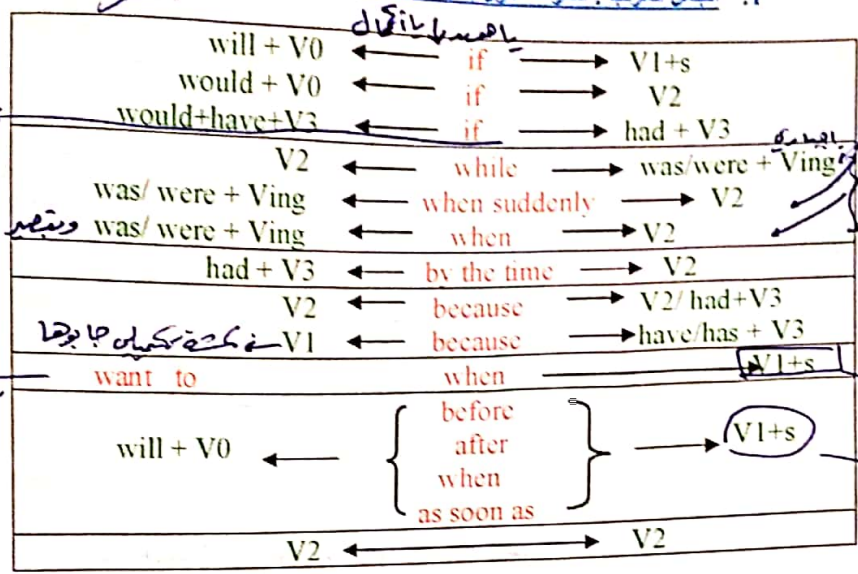 will + V0 ← if → V1+s
would + V0 ← if → V2
would+have+V3 ← if → had + V3
V2 ← while → was/were + Ving
was/ were + Ving ← when suddenly → V2
was/ were + Ving ← when → V2
had + V3 ← by the time → V2
V2 ← because → V2/ had+V3
V1 ← because → have/has + V3
want to when → V1+s
before
after
will + V0 ← { when } → V1+s
as soon as
V2 ↔ V2